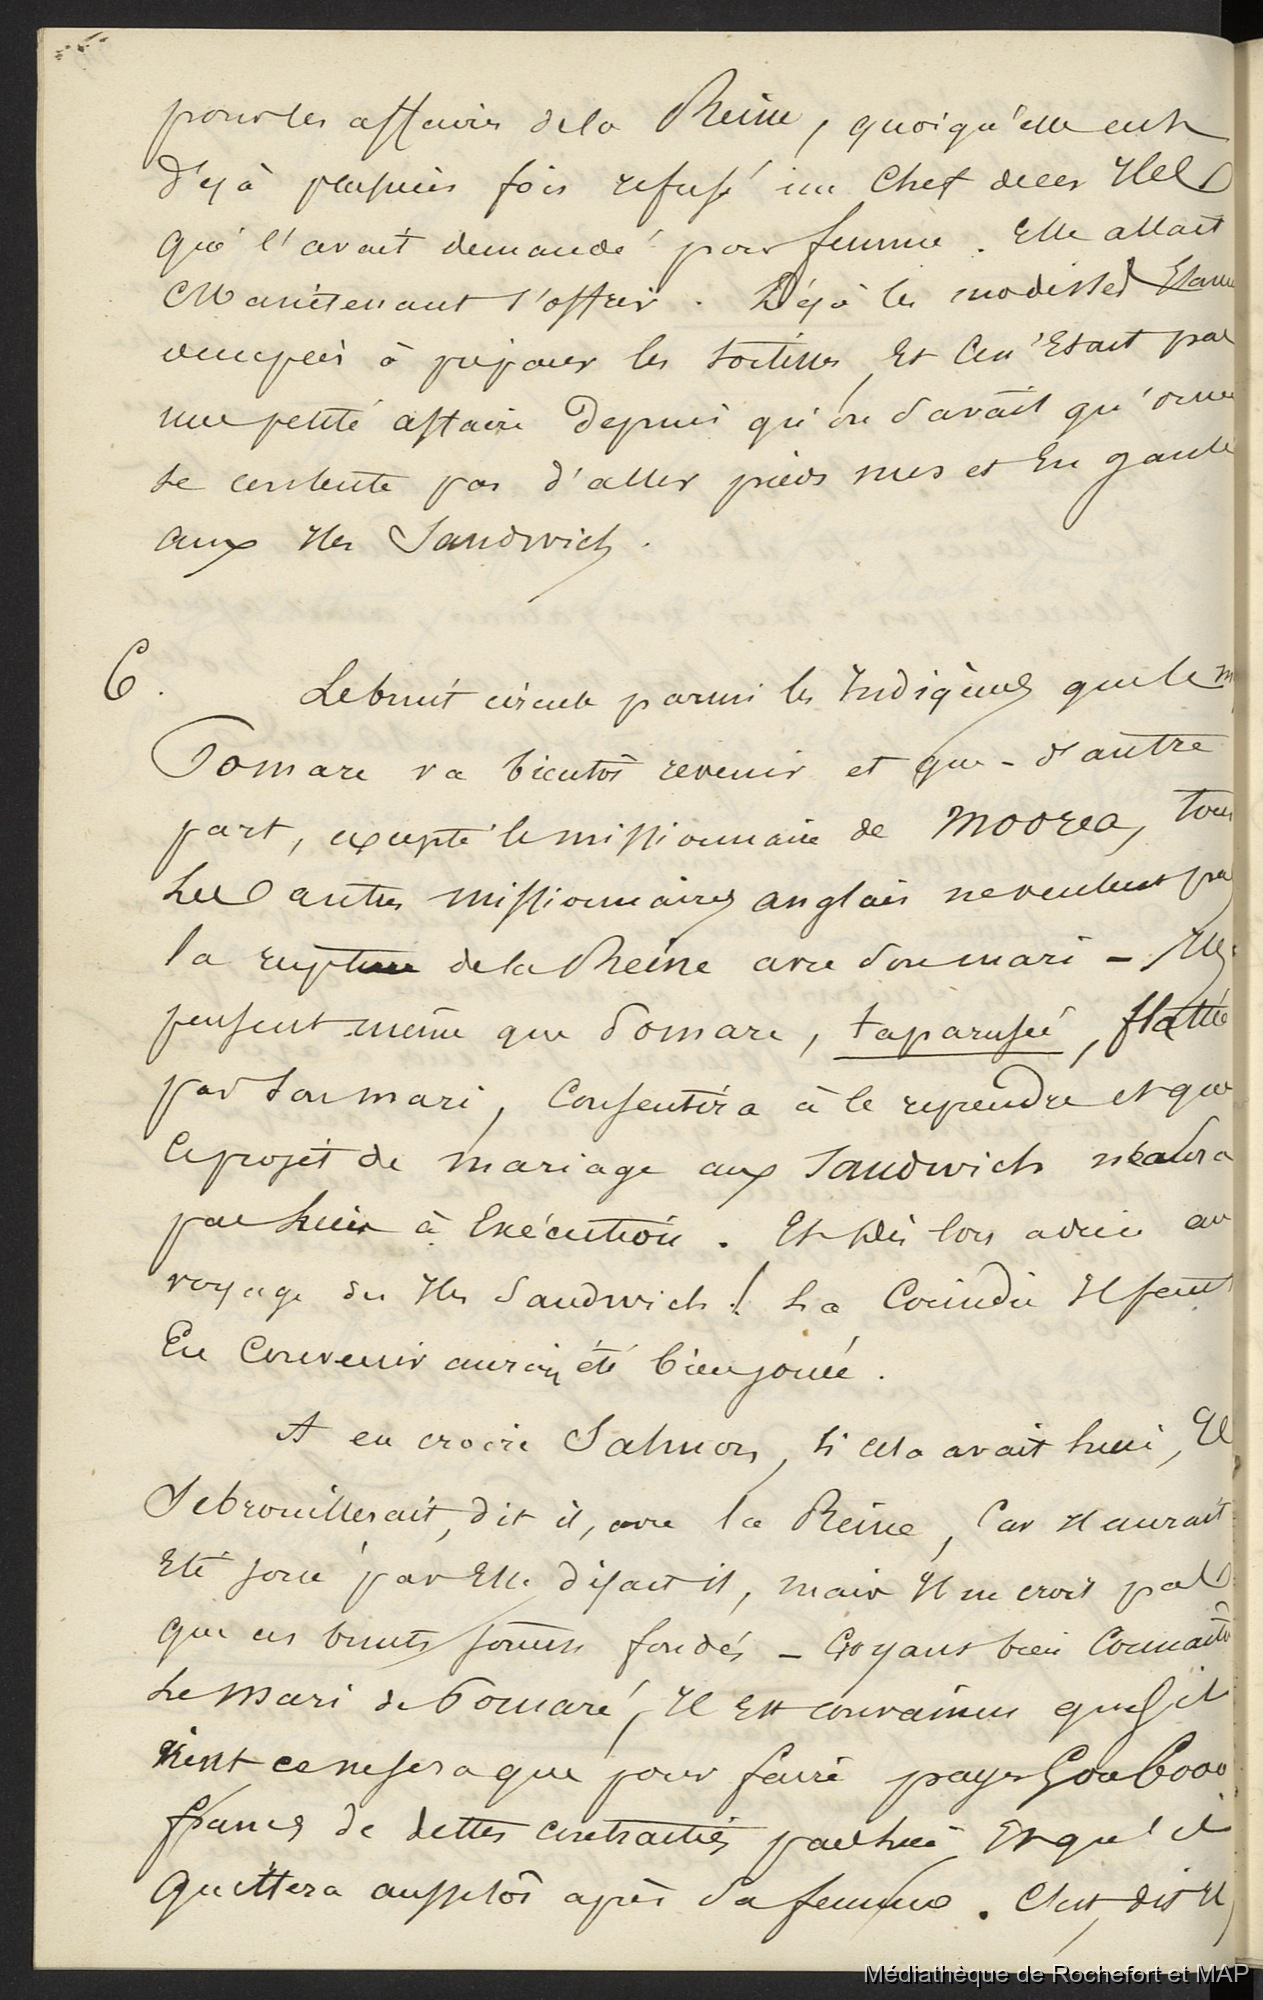 pour les affaires de la Reine, quoiqu'elle eut
déjà plusieurs fois refusé un Chef de ces Iles
qui l'avait demandé pour femme. Elle allait
Maintenant s'offrir. Déjà les modistes Etaient
occupées à préparer les toilettes, Et Ce n'Etait pas
une petite affaire Depuis qu'on savait qu'on ne
se contente pas d'aller pieds nus et En gaule
aux Iles Sandwich.
6. Le bruit circule parmi les Indigènes que le
Pomare va bientôt revenir et que - d'autre
part, excepté le missionnaire de Moorea, tous
Les autres missionnaires anglais ne veulent pas
la rupture de la Reine avec son mari - Ils
pensent même que Pomare, taparusée, flattée
par son mari, Consentira à le reprendre et que
Ce projet de mariage aux Sandwich n'aura
pas suivi à Exécution. Et Dès lors adieu au
voyage des Iles Sandwich! La Comédie Il faut
En Convenir aurait été bien jouée.
A en croire Salmon, si cela avait lieu, Il
Se brouillerait, dit il, avec la Reine, Car Il aurait
Eté joué par Elle disait il, mais Il ne croit pas
que ces bruits soient fondés - Croyant bien Connaître
Le mari de Pomaré, Il Est convaincu que s'il
vient ce ne sera que pour faire payer 5 ou 6000
francs de dettes contractées par lui Et qu'il
Quittera aussitôt après sa femme. C'est, dit Il,
Médiathèque de Rochefort et MAP